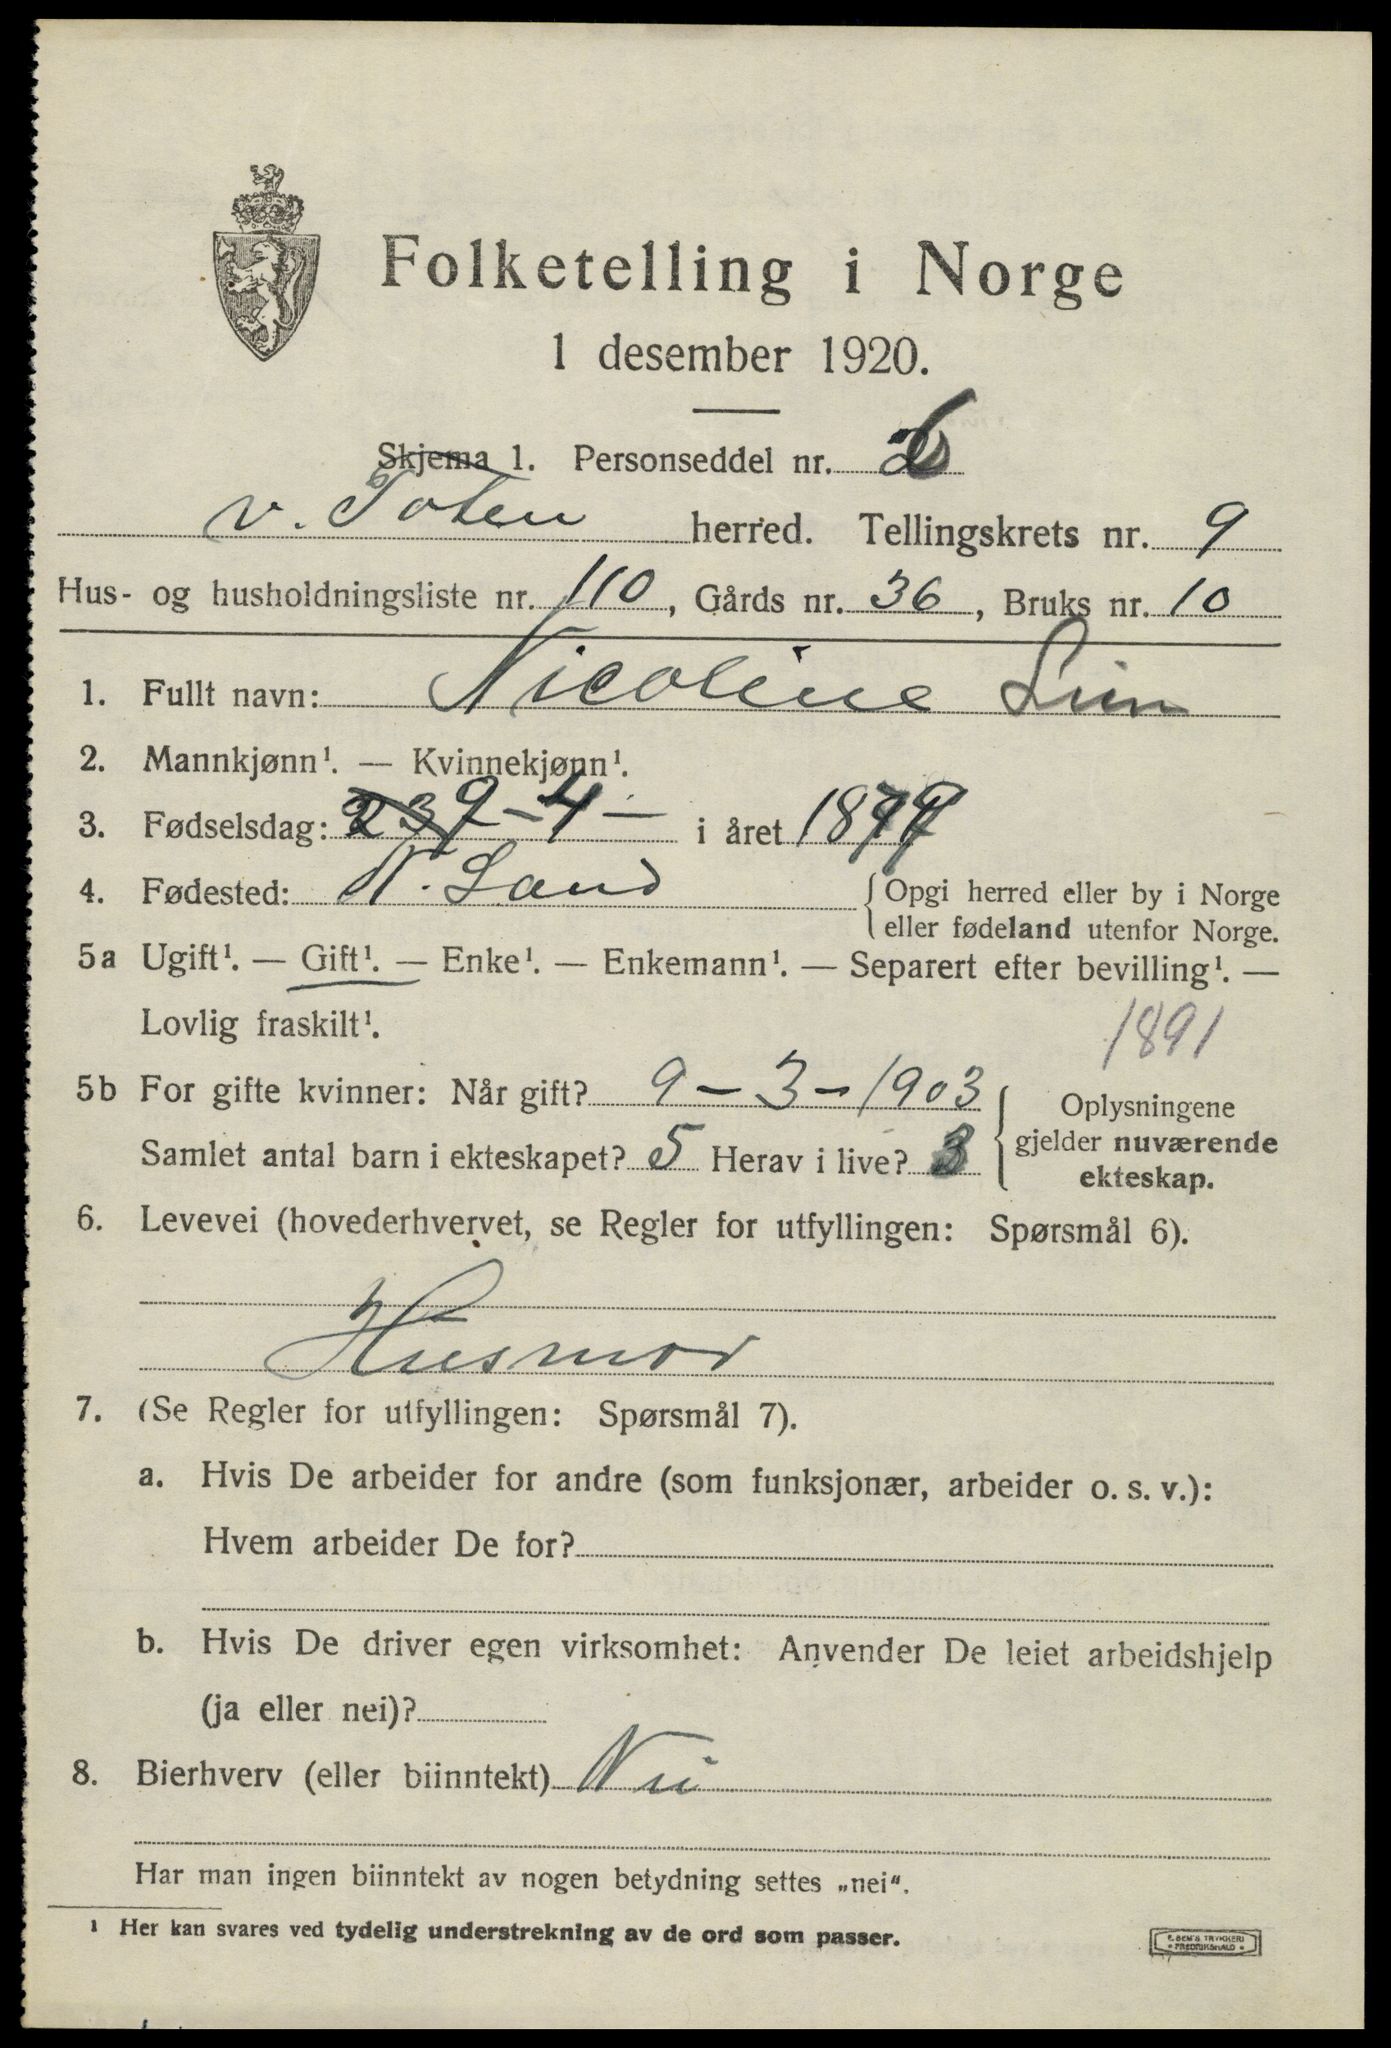 Folketelling i Norge
1 desember 1920.
Skjema 1. Personseddel nr.
v. Toten herred. Tellingskrets nr. 9
Hus- og husholdningsliste nr. 110, Gårds nr. 36, Bruks nr. 10
1. Fullt navn: Nicoline
2. Mannkjønn¹. — Kvinnekjønn¹.
3. Fødselsdag: 23 9-4- i året
4. Fødested: N. Land {Opgi herred eller by i Norge
eller fødeland utenfor Norge.
5a Ugift¹. — Gift¹. — Enke¹. — Enkemann¹. — Separert efter bevilling¹. —
Lovlig fraskilt¹.
1891
5b For gifte kvinner: Når gift? 9-3-1903
Samlet antal barn i ekteskapet? 5 Herav i live? 3
Oplysningene
gjelder nuværende
ekteskap.
6. Levevei (hovederhvervet, se Regler for utfyllingen: Spørsmål 6).
Husmor
7. (Se Regler for utfyllingen: Spørsmål 7).
a. Hvis De arbeider for andre (som funksjonær, arbeider o. s. v.):
Hvem arbeider De for?
b. Hvis De driver egen virksomhet: Anvender De leiet arbeidshjelp
(ja eller nei)?
8. Bierhverv (eller biinntekt) Nei
Har man ingen biinntekt av nogen betydning settes „nei“.
¹ Her kan svares ved tydelig understrekning av de ord som passer.
E. SEM'S TRYKKERI
• FREDRIKSHALD •